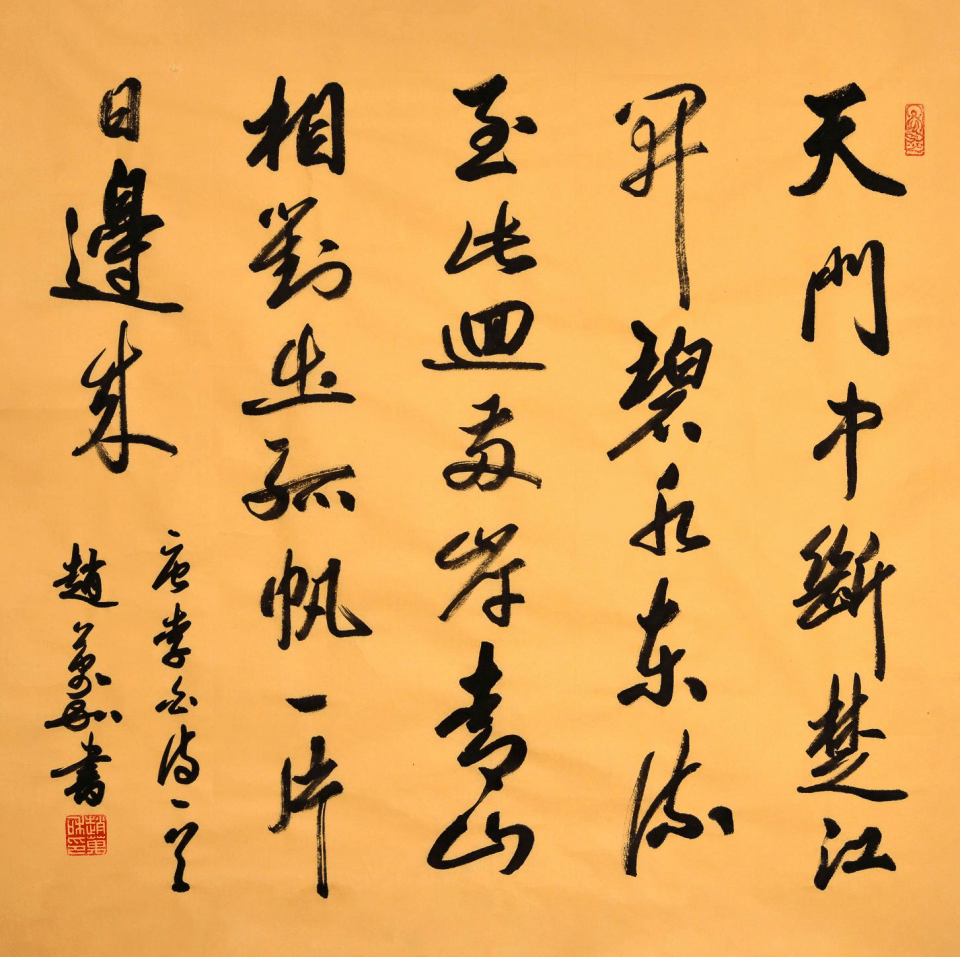 天門中斷楚江
開碧水東流
至此迴兩岸青山
相對出孤帆一片
日邊來
唐李白詩一首
趙萬書